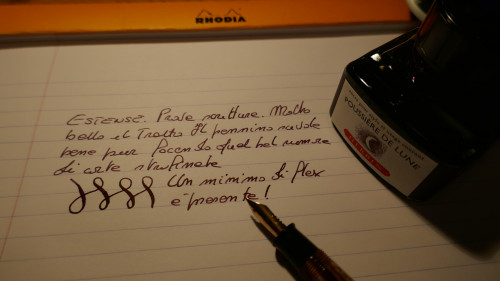 RHODIA
ESTENSE. Prove scritture. Molto
bello il Tratto Il pennino scivola
bene pur facendo quel bel rumore
di carta strofinata
Un minimo di flex
è presente!
POUSSIÈRE DE LUNE
J. HERBIN